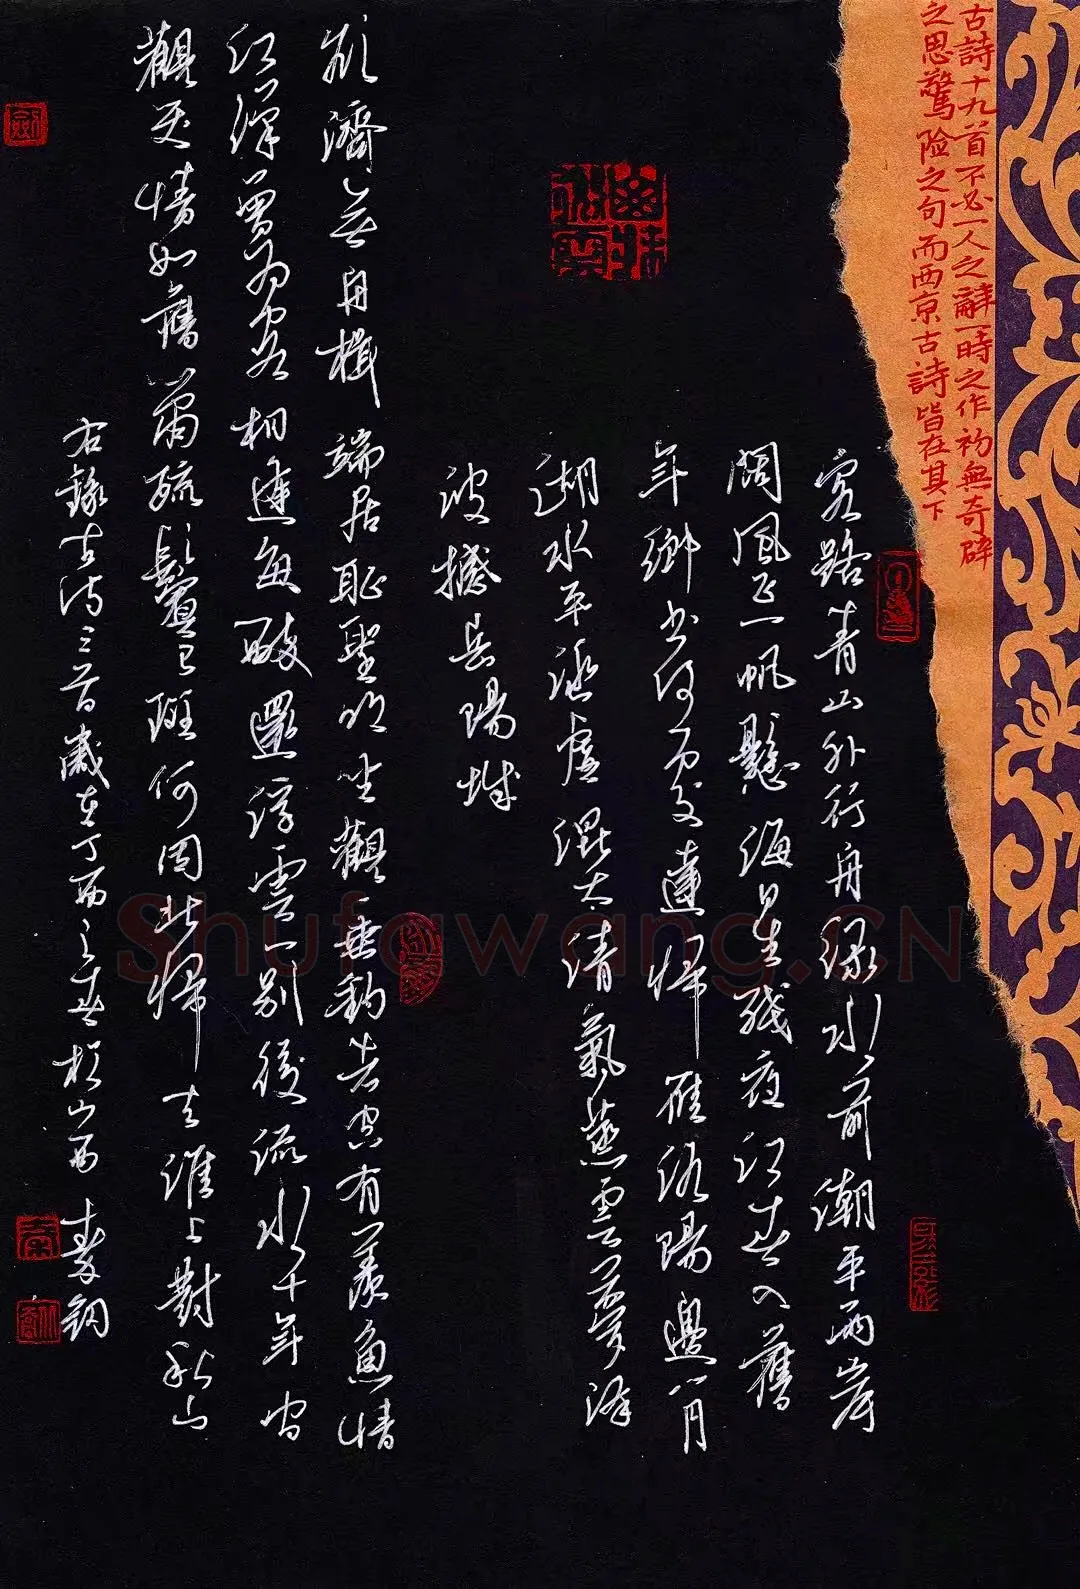 古詩十九首不必一人之辭一時之作初無奇
之思驚险之句而西京古詩皆在其下
客路青山外行舟綠水前潮平兩岸
闊風正一帆懸海日生殘夜江春入舊
年鄉書何處達歸雁洛陽邊八月
湖水平涵虛混太清氣蒸雲夢澤
波撼岳陽城
欲濟無舟楫端居恥聖明坐觀垂釣者空有羨魚情
江漢曾為客相逢每醉還浮雲一別後流水十年間
觀笑情如舊蕭疏鬢已斑何因北歸去淮上對秋山
右錄古詩三首歲在丁酉之春於山西秦
Shufawang.CN